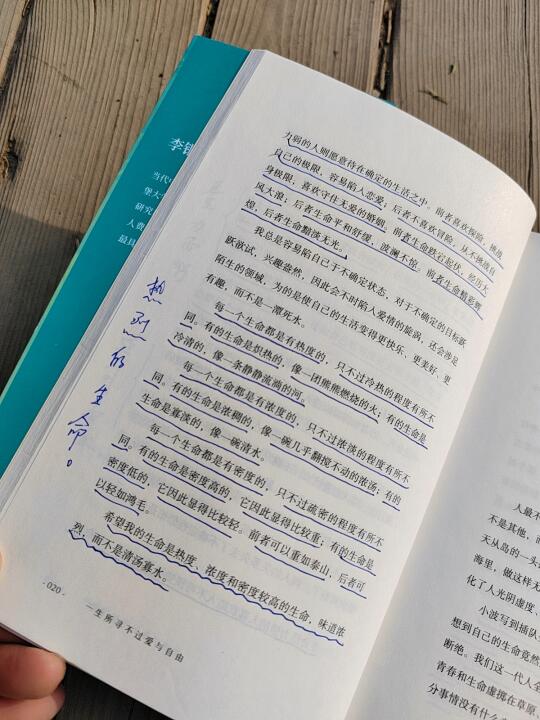 力弱的人则愿意待在确定的生活之中。前者喜欢探险，挑战
自己的极限，容易陷入恋爱，后者不喜欢冒险，从不挑战自
身极限，喜欢守住无爱的婚姻；前者生命跌宕起伏，经历大
风大浪；后者生命平和舒缓，波澜不惊。前者生命精彩辉
煌，后者生命黯淡无光。
我总是容易陷自己于不确定状态，对于不确定的目标跃
跃欲试，兴趣盎然，因此会不时陷入爱情的旋涡，还会涉足
陌生的领域，为的是使自己的生活变得更快乐、更美好、更
有趣，而不是一潭死水。
每一个生命都是有热度的，只不过冷热的程度有所不
同。有的生命是炽热的，像一团熊熊燃烧的火；有的生命是
冷清的，像一条静静流淌的河。
每一个生命都是有浓度的，只不过浓淡的程度有所不
同。有的生命是浓稠的，像一碗几乎翻搅不动的浓汤；有的
生命是寡淡的，像一碗清水。
每一个生命都是有密度的，只不过疏密的程度有所不
同。有的生命是密度高的，它因此显得比较重；有的生命是
密度低的，它因此显得比较轻。前者可以重如泰山，后者可
以轻如鸿毛。
希望我的生命是热度、浓度和密度较高的生命，味道浓
烈，而不是清汤寡水。
·020·
一生所寻不过爱与自由
热烈的生命。
李银
当代
堡大
研究
人
最具
人最不
不是其他，而
天从岛的一头
海里，做这样无
化了人光阴虚度、
小波写到插队
想到自己的生命竟然
断绝。我们这一代人全
青春和生命虚掷在草原、
分事情没有什么